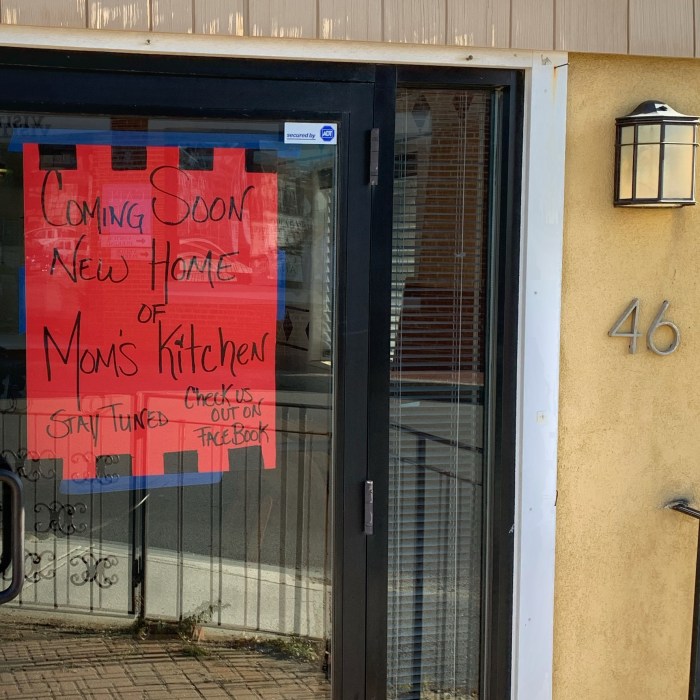 secured by ADT
COMING SOON
NEW HOME
OF
MOM'S KITCHEN
STAY TUNED
CHECK US
OUT ON
FACEBOOK
46